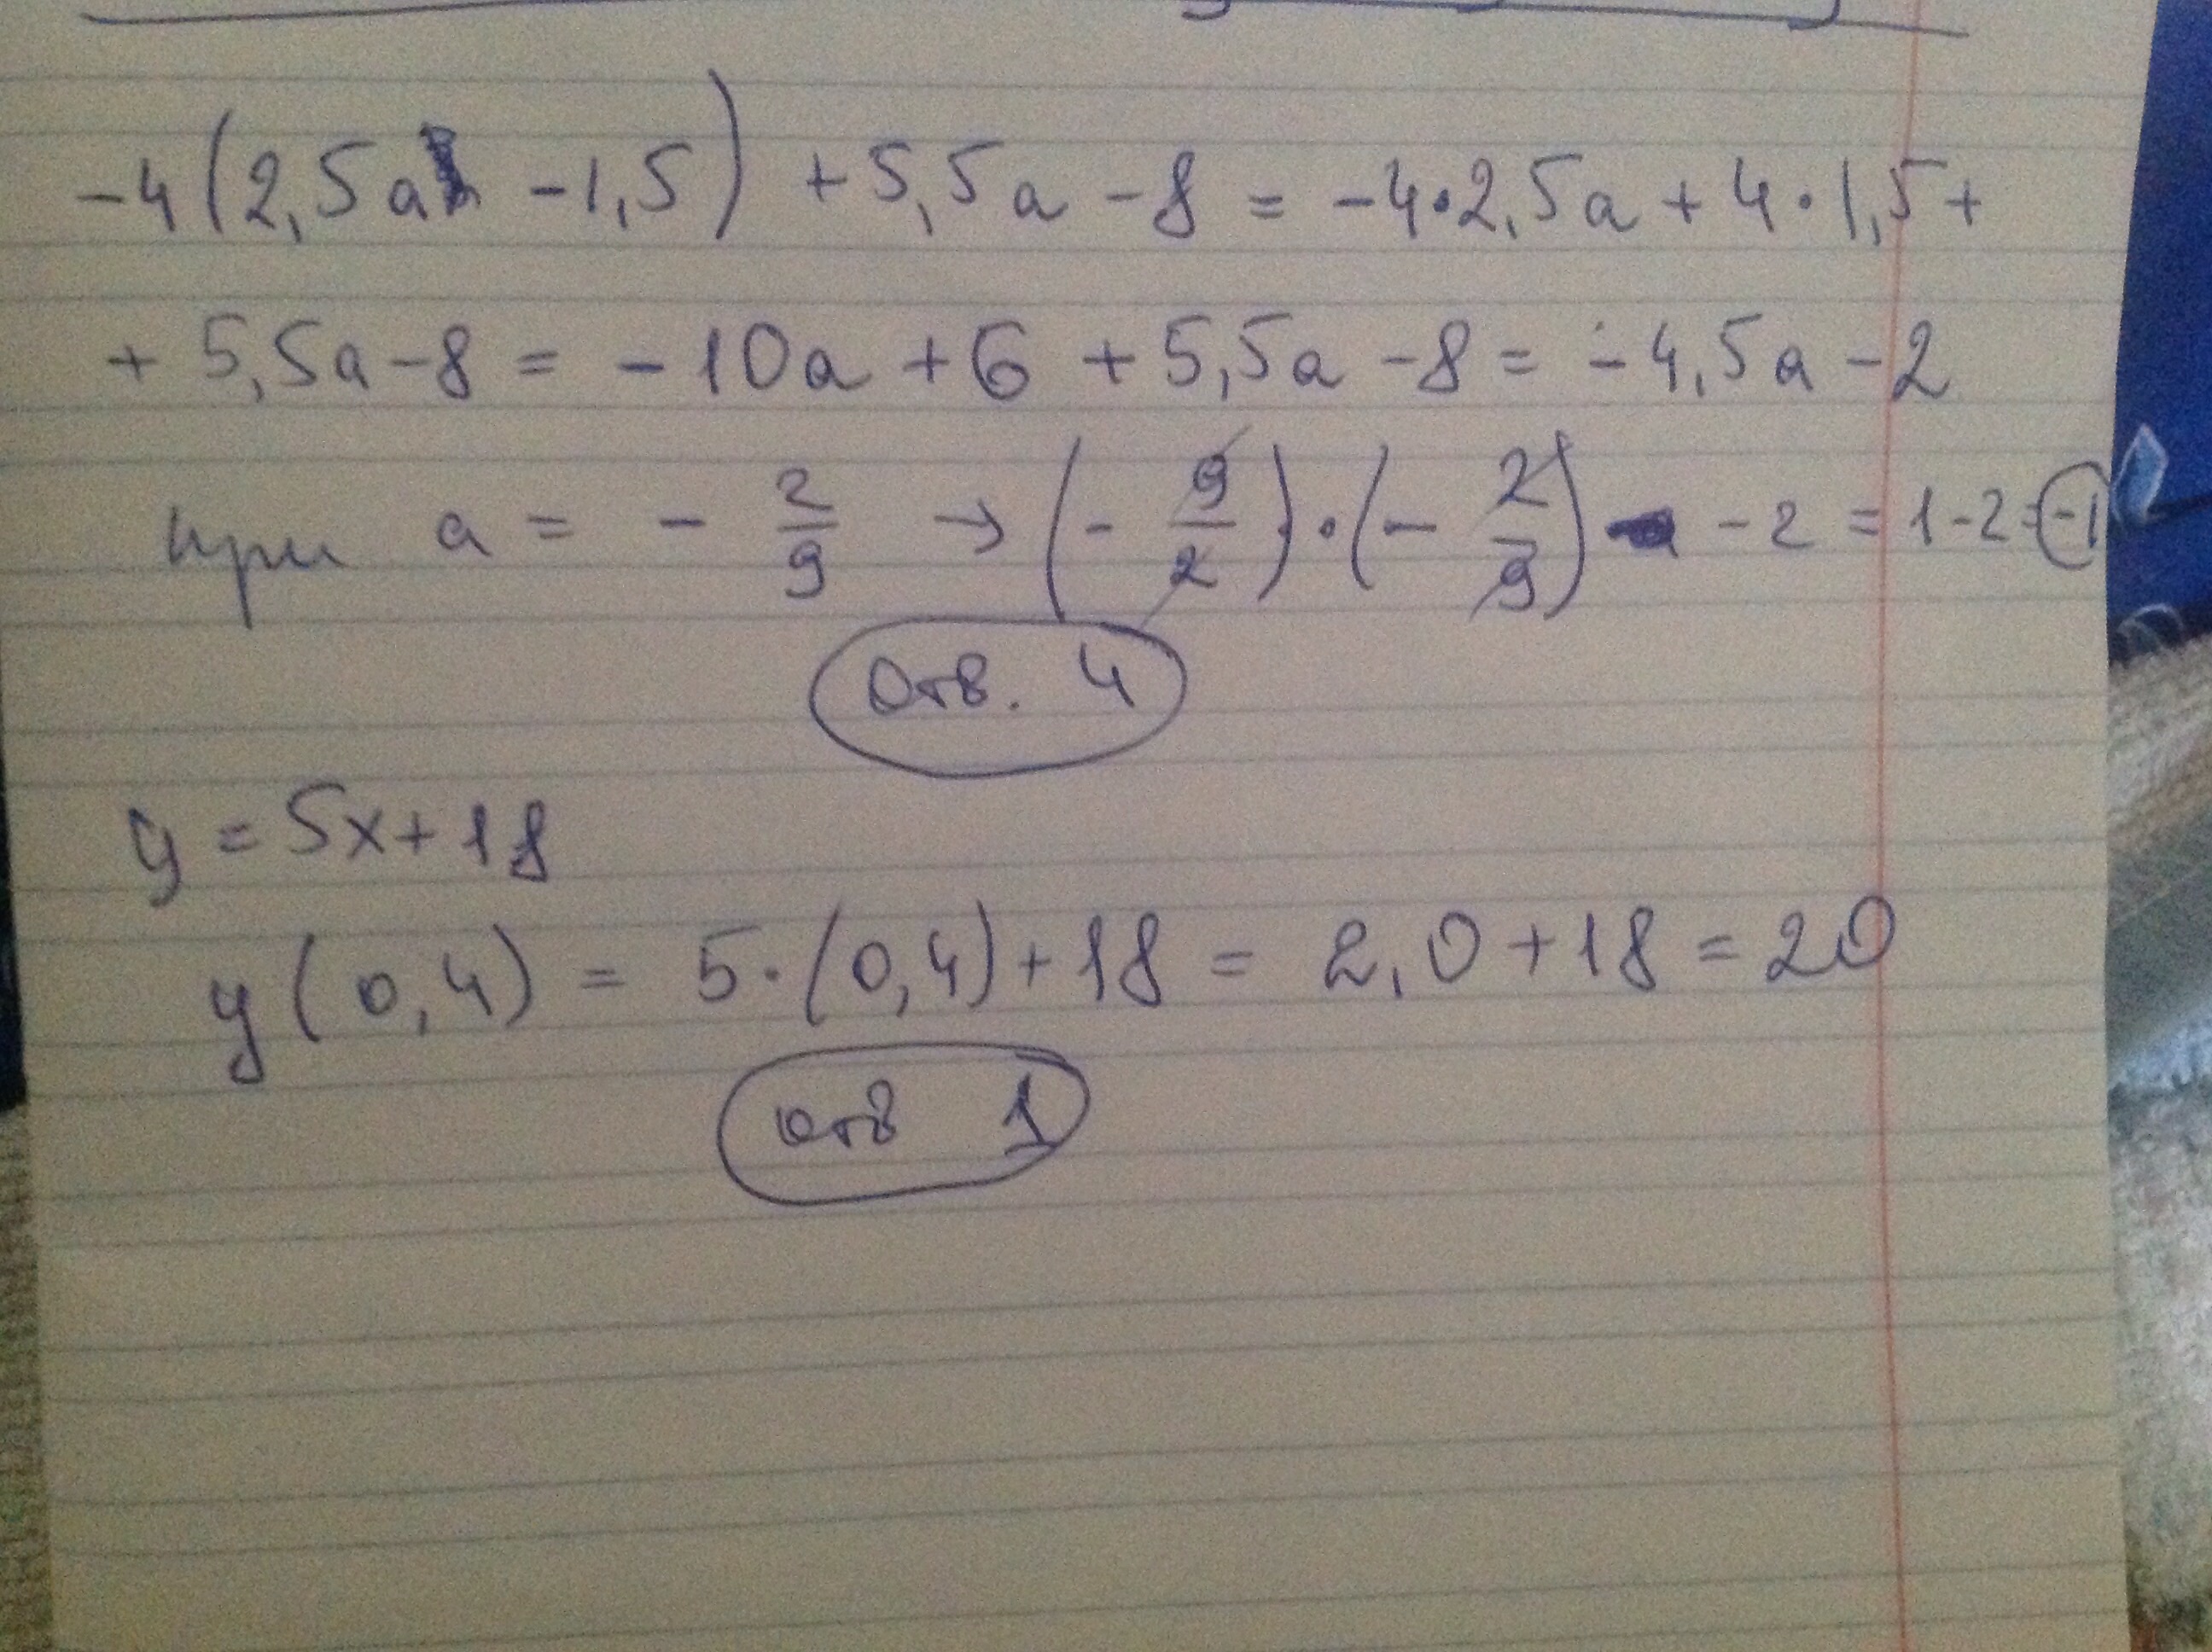 -4(2,5a -1,5) +5,5a -8 = -4·2,5a + 4·1,5+
+ 5,5a-8 = -10a +6 +5,5a -8 = -4,5a -2
при a = - 2/9 → (- 9/2)·(- 2/9) - 2 = 1-2=-1
Отв. 4
y = 5x+18
y(0,4) = 5·(0,4)+18 = 2,0+18=20
отв 1